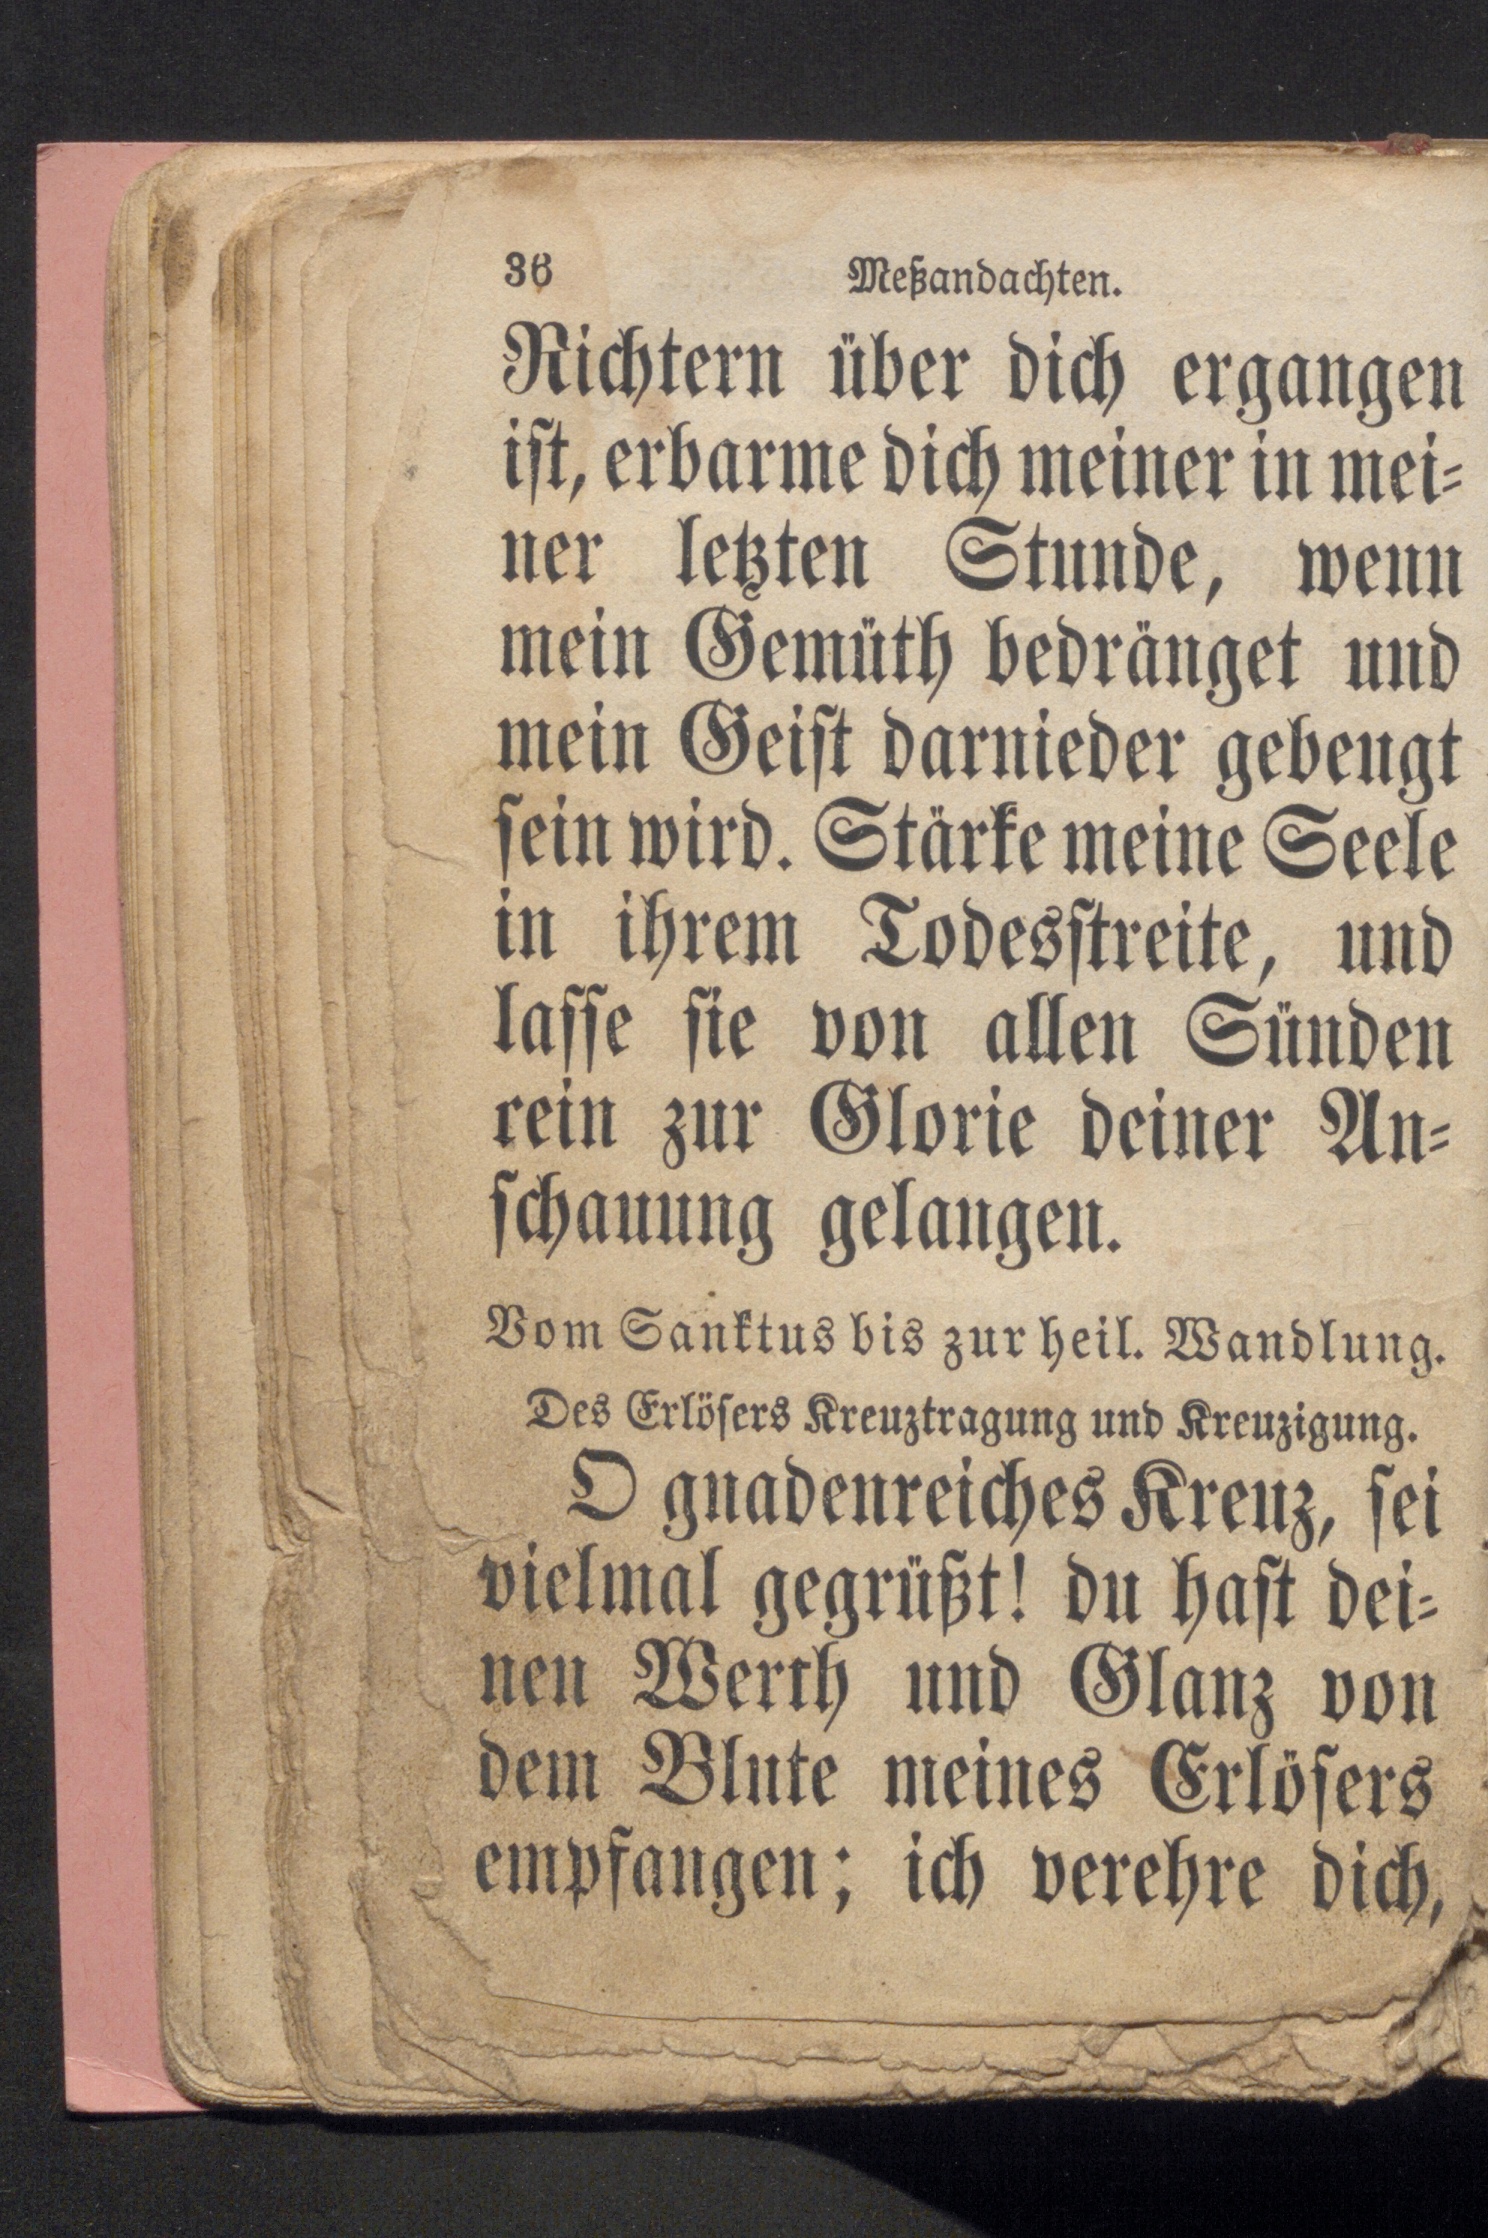 36 Meßandachten.
Richtern über dich ergangen
ist, erbarme dich meiner in mei-
ner letzten Stunde, wenn
mein Gemüth bedränget und
mein Geist darnieder gebeugt
sein wird. Stärke meine Seele
in ihrem Todesstreite, und
lasse sie von allen Sünden
rein zur Glorie deiner An-
schauung gelangen.
Vom Sanktus bis zur heil. Wandlung.
Des Erlösers Kreuztragung und Kreuzigung.
O gnadenreiches Kreuz, sei
vielmal gegrüßt! du hast dei-
nen Werth und Glanz von
dem Blute meines Erlösers
empfangen; ich verehre dich,